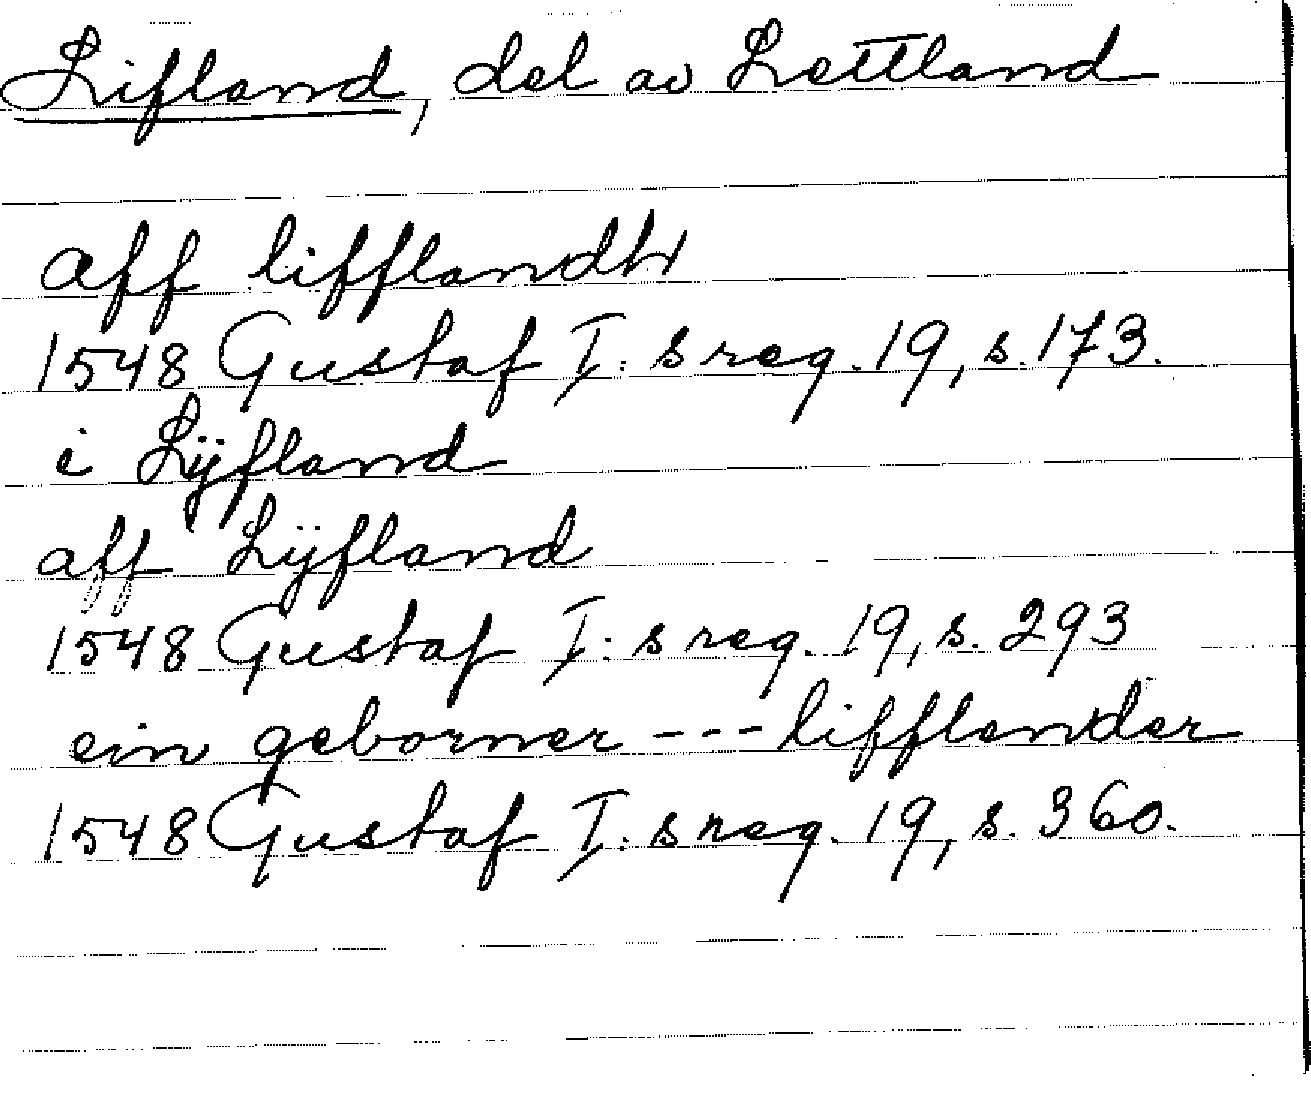 Lifland, del av Lettland
aff lifflandh
1548 Gustaf I:s reg. 19, s. 173.
i Lÿfland
aff Lÿfland
1548 Gustaf I:s reg. 19, s. 293
ein geborner --- lifflender
1548 Gustaf I:s reg. 19, s. 360.